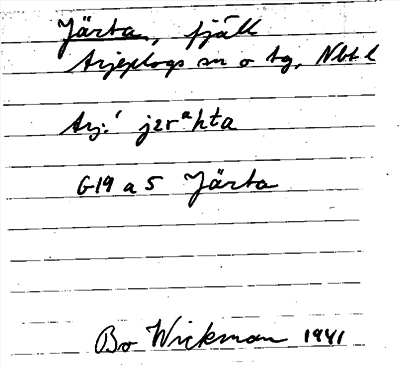 Järta, fjäll
Arjeplogs sn o tg, Nbt l
Arj.: jærᵃhta
G19 a 5 Järta
Bo Wickman 1941